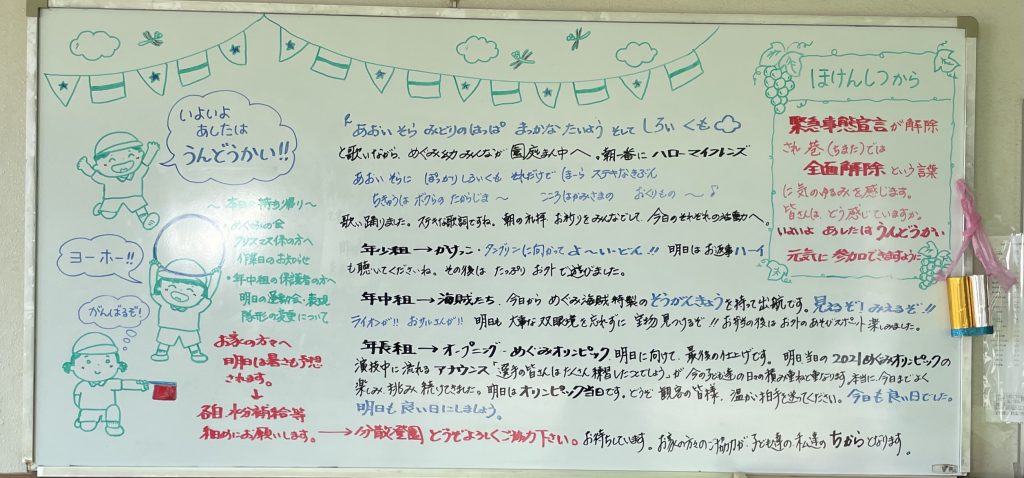 いよいよ
あしたは
うんどうかい!!
ヨーホー!!
がんばるぞ!
〜本日の持ち帰り〜
・めぐみの会
クリスマス係の方へ
作業日のお知らせ
・年中組の保護者の方へ
明日の運動会・表現
隊形の変更について
お家の方々へ
明日は暑さも予想
されます。
↓
各自水分補給等
細めにお願いします。→分散登園 どうぞよろしくご協力下さい。お待ちしています。お家の方々のご協力が子ども達の私達のちからとなります。
『あおいそら みどりのはっぱ まっかなたいよう そして しろいくも
と歌いながら、めぐみ幼みんなが園庭まん中へ。朝一番にハローマイフレンズ
あおいそらに ぽっかりしろいくも それだけで ほーら ステキなきぶん
ちきゅうは ボクらの たからじま〜 こころはかみさまの おくりもの〜♪
歌い踊りました。ステキな歌詞ですね。朝の礼拝 お祈りをみんなでして 今日のそれぞれの活動へ。
年少組→かけっこ・タンブリンに向かって よ〜い・どん!! 明日はお返事ハーイ
も聴いてくださいね。その後は たっぷり お外で遊びました。
年中組→海賊たち、今日から めぐみ海賊特製の そうがんきょうを持って出航です。見えるぞ!みえるぞ!!
ライオンが!! おサルさんが!! 明日も 大事な双眼鏡を忘れずに 宝物見つけるぞ!!お弁当の後は お外のあそびスポット楽しみました。
年長組→オープニング・めぐみオリンピック 明日に向けて、最後の仕上げです。 明日当日の2021めぐみオリンピックの
演技中に流れる アナウンス「選手の皆さんはたくさん練習したことでしょう」が 今の子ども達の日々の積み重ねと重なります。本当に、今日までよく
楽しみ、挑み、続けてきました。明日はオリンピック当日です。どうぞ 観客の皆様、温かい拍手を送ってください。今日も良い日でした。
明日も良い日にしましょう。
ほけんしつから
緊急事態宣言が解除
され 巷(ちまた)では
全面解除という言葉
に気のゆるみを感じます。
皆さんは、どう感じていますか。
いよいよ あしたは うんどうかい
元気に参加できますように